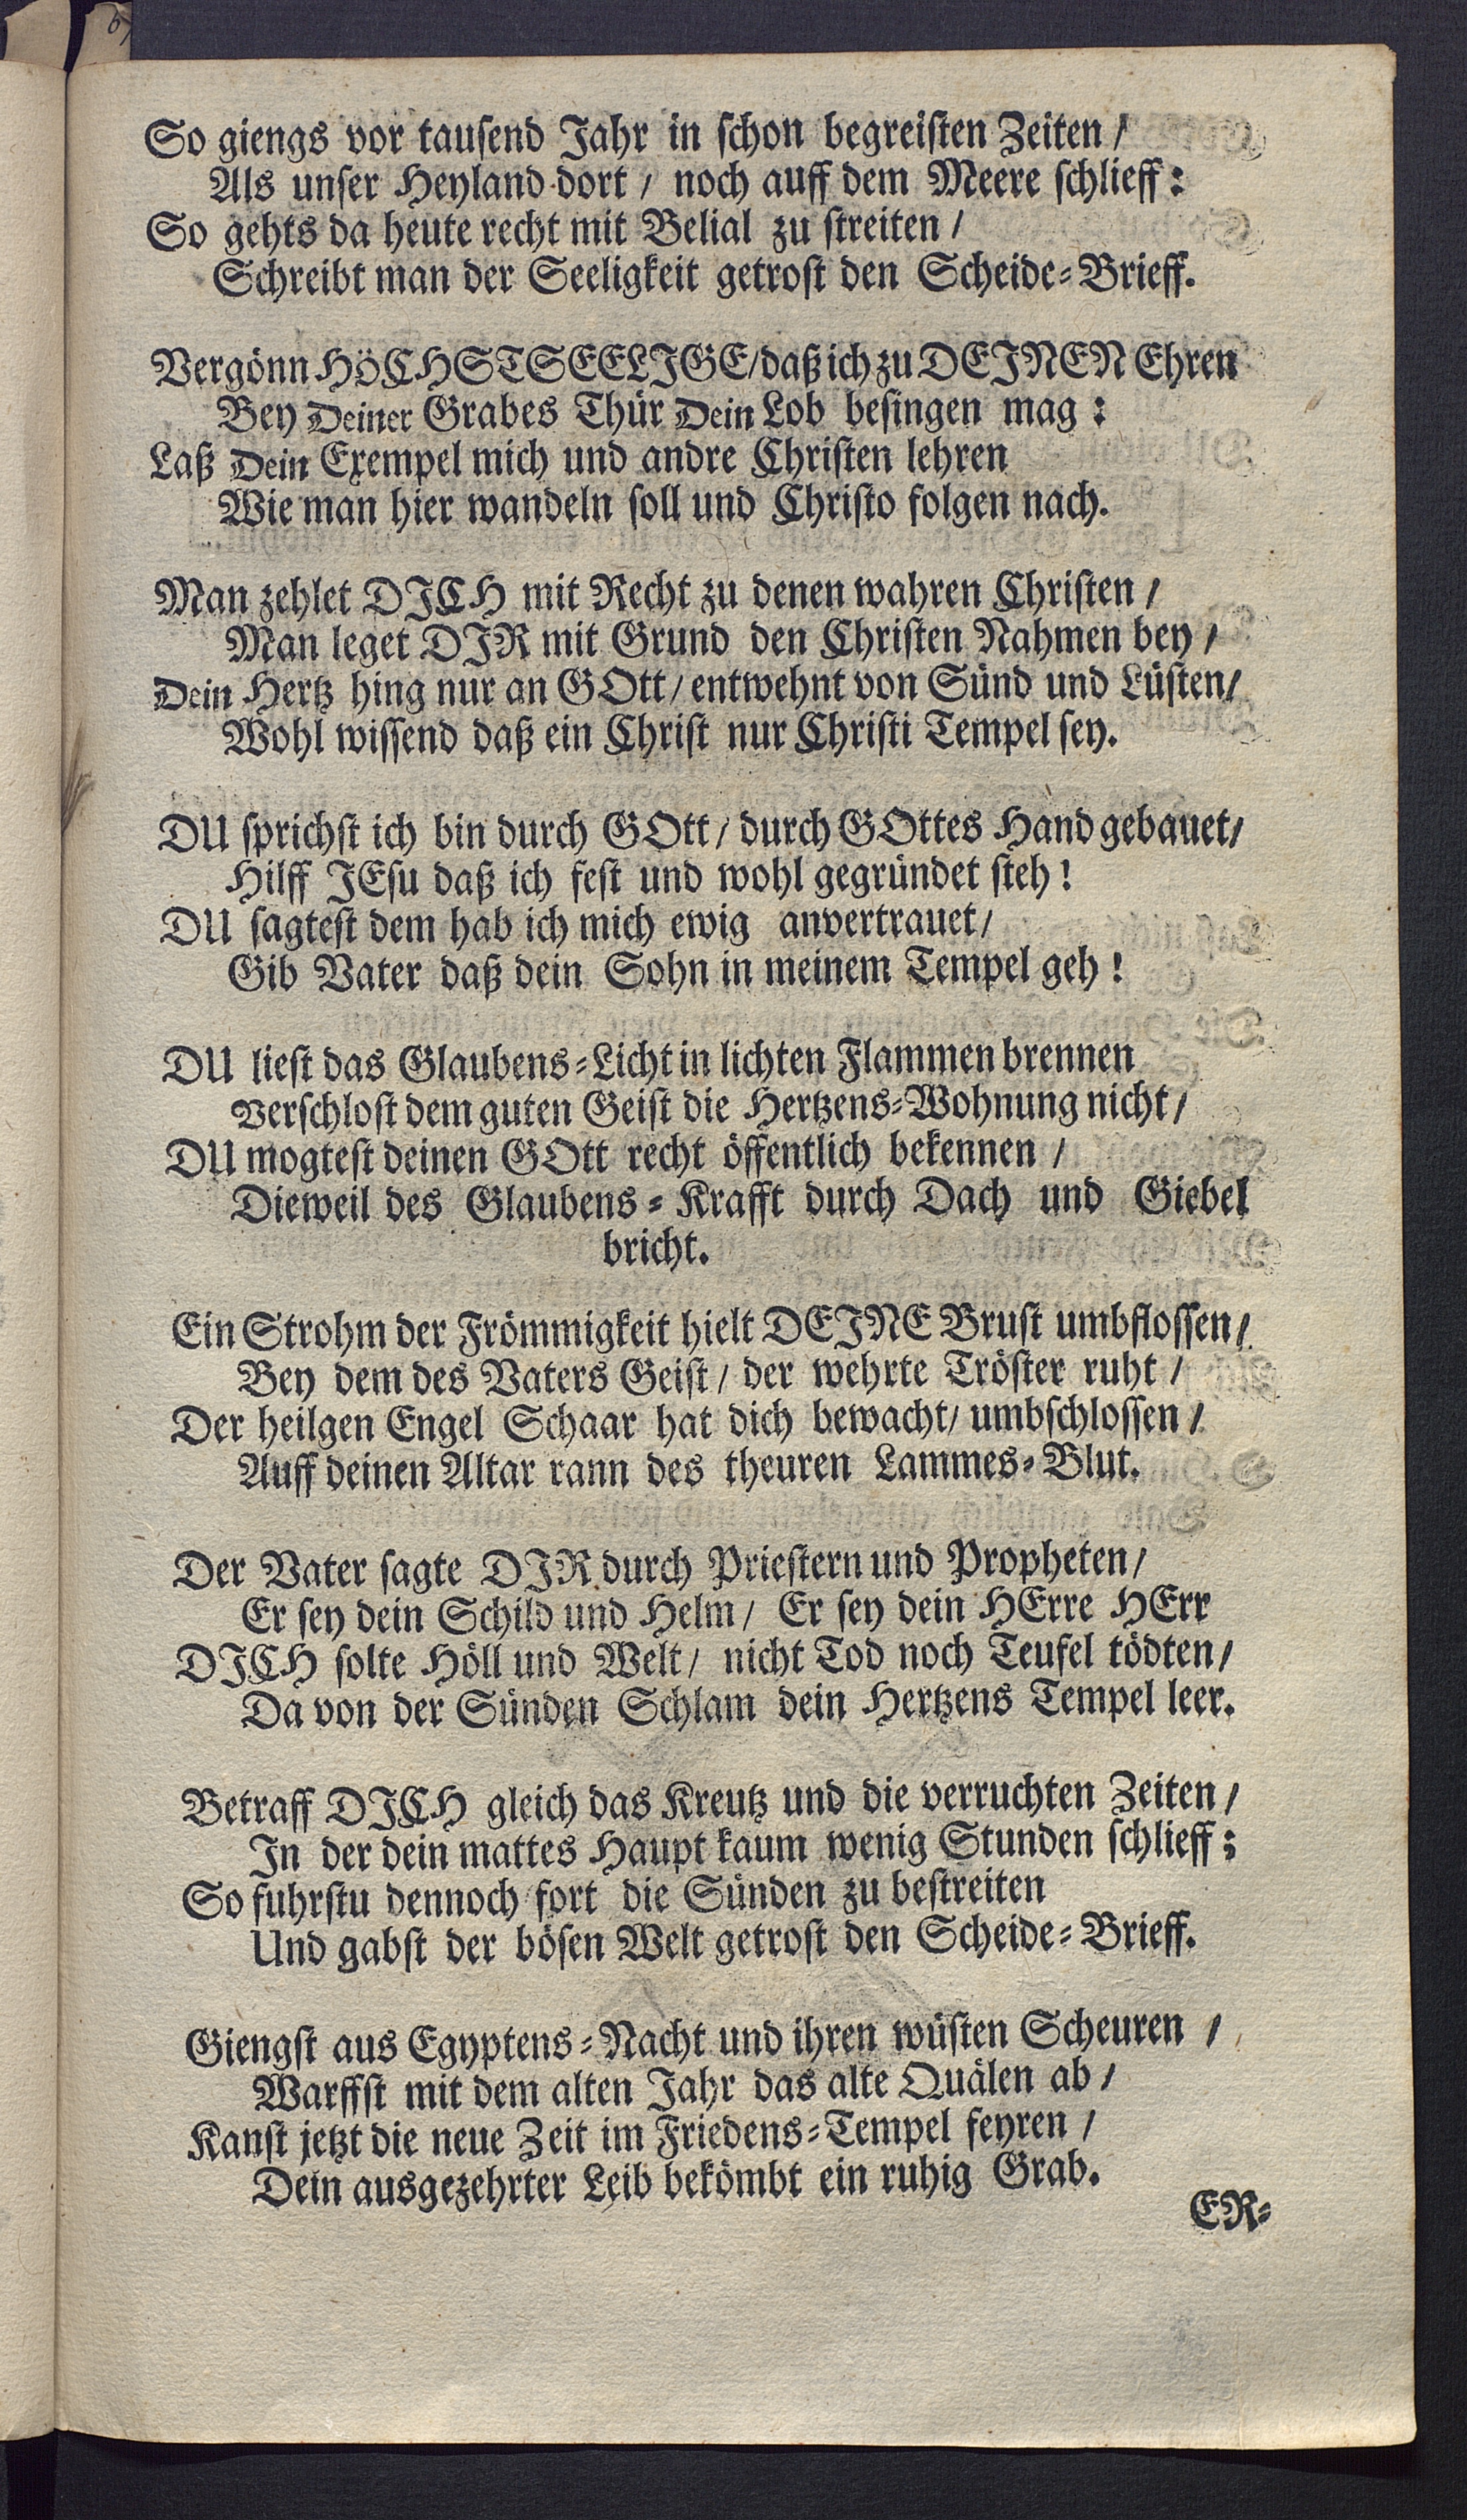 So giengs vor tausend Jahr in schon begreisten Zeiten /
Als unser Heyland dort / noch auff dem Meere schlieff:
So gehts da heute recht mit Belial zu streiten /
Schreibt man der Seeligkeit getrost den Scheide-Brieff.
Vergönn HÖCHSTSEELIGE / daß ich zu DEINEN Ehren
Bey Deiner Grabes Thür Dein Lob besingen mag:
Laß Dein Exempel mich und andre Christen lehren
Wie man hier wandeln soll und Christo folgen nach.
Man zehlet DICH mit Recht zu denen wahren Christen /
Man leget DIR mit Grund den Christen Nahmen bey /
Dein Hertz hing nur an GOtt / entwehnt von Sünd und Lüsten /
Wohl wissend daß ein Christ nur Christi Tempel sey.
DU sprichst ich bin durch GOtt / durch GOttes Hand gebauet /
Hilff JEsu daß ich fest und wohl gegründet steh!
DU sagtest dem hab ich mich ewig anvertrauet /
Gib Vater daß dein Sohn in meinem Tempel geh!
DU liest das Glaubens-Licht in lichten Flammen brennen
Verschlost dem guten Geist die Hertzens-Wohnung nicht /
DU mogtest deinen GOtt recht öffentlich bekennen /
Dieweil des Glaubens-Krafft durch Dach und Giebel
bricht.
Ein Strohm der Frömmigkeit hielt DEINE Brust umbflossen /
Bey dem des Vaters Geist / der wehrte Tröster ruht /
Der heilgen Engel Schaar hat dich bewacht / umbschlossen /
Auff deinen Altar rann des theuren Lammes-Blut.
Der Vater sagte DIR durch Priestern und Propheten /
Er sey dein Schild und Helm / Er sey dein HErre HErr
DICH solte Höll und Welt / nicht Tod noch Teufel tödten /
Da von der Sünden Schlam dein Hertzens Tempel leer.
Betraff DICH gleich das Kreutz und die verruchten Zeiten /
In der dein mattes Haupt kaum wenig Stunden schlieff:
So fuhrstu dennoch fort die Sünden zu bestreiten
Und gabst der bösen Welt getrost den Scheide-Brieff.
Giengst aus Egyptens-Nacht und ihren wüsten Scheuren /
Warffst mit dem alten Jahr das alte Quälen ab /
Kanst jetzt die neue Zeit im Friedens-Tempel feyren /
Dein ausgezehrter Leib bekömbt ein ruhig Grab.
ER-